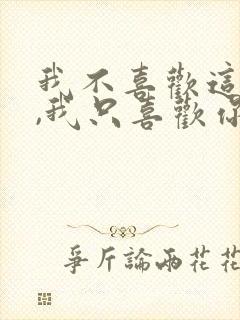 我不喜歡這
,我只喜歡你
爭斤論兩花花